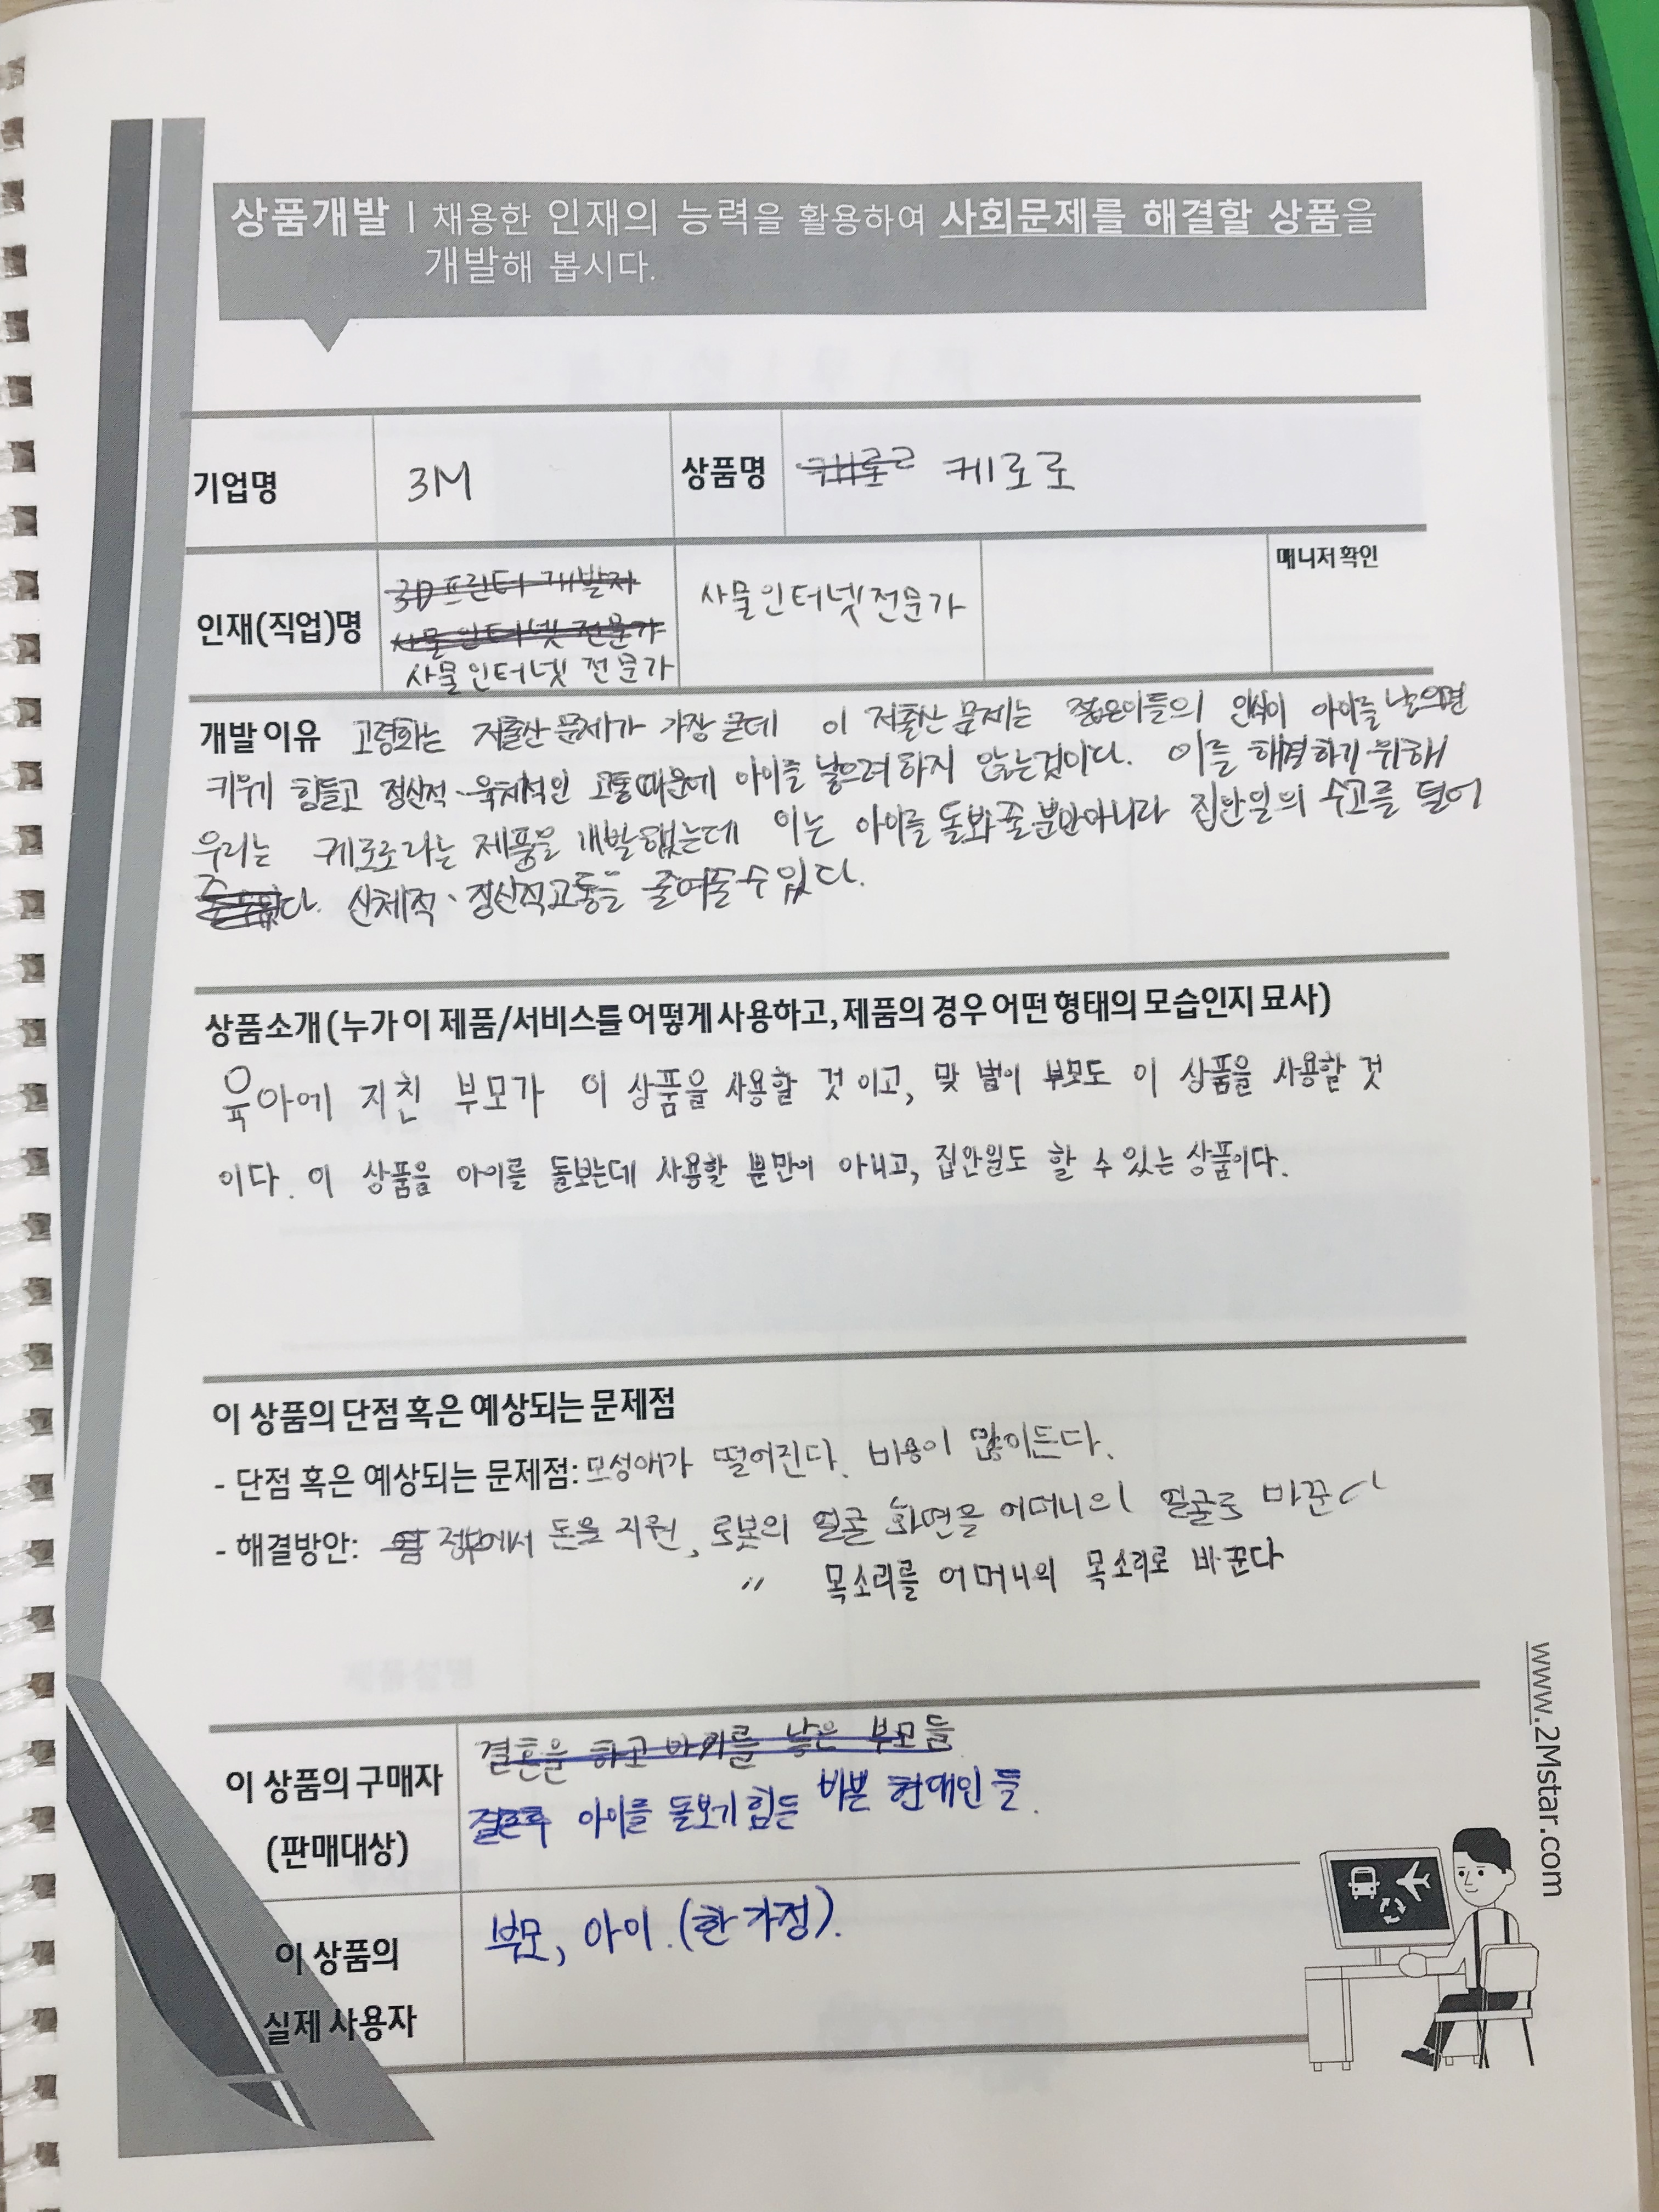 상품개발 | 채용한 인재의 능력을 활용하여 사회문제를 해결할 상품을
개발해 봅시다.
기업명 3M 상품명 케로로
매니저 확인
인재(직업)명 3D프린터 개발자 사물인터넷전문가
사물인터넷 전문가
사물인터넷 전문가
개발 이유 고령화는 저출산문제가 가장 큰데 이 저출산 문제는 젊은이들의 인식이 아이를 낳으면
키우기 힘들고 정신적·육체적인 고통때문에 아이를 낳으려 하지 않는것이다. 이를 해결하기 위해
우리는 케로로라는 제품을 개발했는데 이는 아이를 돌봐줄뿐만아니라 집안일의 수고를 덜어
다. 신체적·정신적고통을 줄여줄수있다.
상품소개(누가 이 제품/서비스를 어떻게 사용하고, 제품의 경우 어떤 형태의 모습인지 묘사)
육아에 지친 부모가 이 상품을 사용할 것 이고, 맞벌이 부모도 이 상품을 사용할 것
이다. 이 상품을 아이를 돌보는데 사용할 뿐만이 아니고, 집안일도 할 수 있는 상품이다.
이 상품의 단점 혹은 예상되는 문제점
- 단점 혹은 예상되는 문제점: 모성애가 떨어진다. 비용이 많이든다.
- 해결방안: 정부에서 돈을 지원, 로봇의 얼굴 화면을 어머니의 얼굴로 바꾼다
〃 목소리를 어머니의 목소리로 바꾼다
이 상품의 구매자
(판매대상)
결혼을 하고 아기를 낳은 부모들
아이를 돌보기 힘든 바쁜 현대인들.
이 상품의
실제 사용자
부모, 아이.(한 가정).
www.2Mstar.com